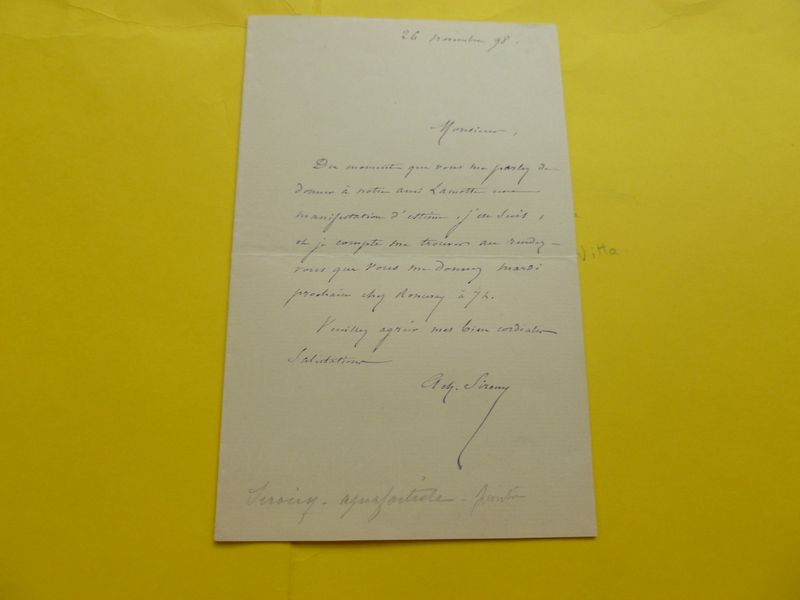 26 novembre 98.
Monsieur,
Du moment que vous me parlez de
donner à notre ami Lamotte une
manifestation d'estime, j'en suis ;
et je compte me trouver au rendez-
vous que vous me donnez mardi
prochain chez Ronceray à 7h.
Veuillez agréer mes bien cordiales
Salutations
Ach. Sirouy
Sirouy - aquafortiste - peintre